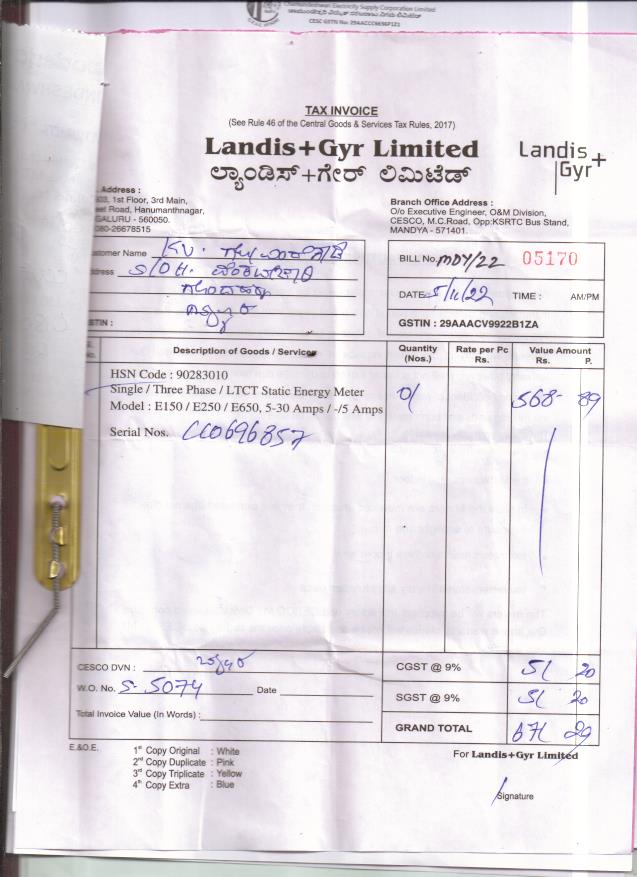 Chamundeshwari Electricity Supply Corporation Limited
ಚಾಮುಂಡೇಶ್ವರಿ ವಿದ್ಯುತ್ ಸರಬರಾಜು ನಿಗಮ ಲಿಮಿಟೆಡ್
CESC GSTN No:
TAX INVOICE
(See Rule 46 of the Central Goods & Services Tax Rules, 2017)
Landis+Gyr Limited
ಲ್ಯಾಂಡಿಸ್+ಗೇರ್ ಲಿಮಿಟೆಡ್
Landis+
Gyr
Address :
1st Floor, 3rd Main,
Road, Hanumanthnagar,
GALURU - 560050.
080-26678515
Branch Office Address :
O/o Executive Engineer, O&M Division,
CESCO, M.C.Road, Opp:KSRTC Bus Stand,
MANDYA - 571401.
stomer Name K.V.
ddress S/O H.
STIN :
BILL No. MDY/22 05170
DATE 5/11/22 TIME : AM/PM
GSTIN : 29AAACV9922B1ZA
No. Description of Goods / Services Quantity (Nos.) Rate per Pc Rs. Value Amount Rs. P.
HSN Code : 90283010
Single / Three Phase / LTCT Static Energy Meter 01 568- 89
Model : E150 / E250 / E650, 5-30 Amps / -/5 Amps
Serial Nos. CC0696857
CESCO DVN :
W.O. No. S-5074 Date
Total Invoice Value (In Words) :
CGST @ 9% 51 20
SGST @ 9% 51 20
GRAND TOTAL 671 29
E.&O.E.
1st Copy Original : White
2nd Copy Duplicate : Pink
3rd Copy Triplicate : Yellow
4th Copy Extra : Blue
For Landis+Gyr Limited
Signature